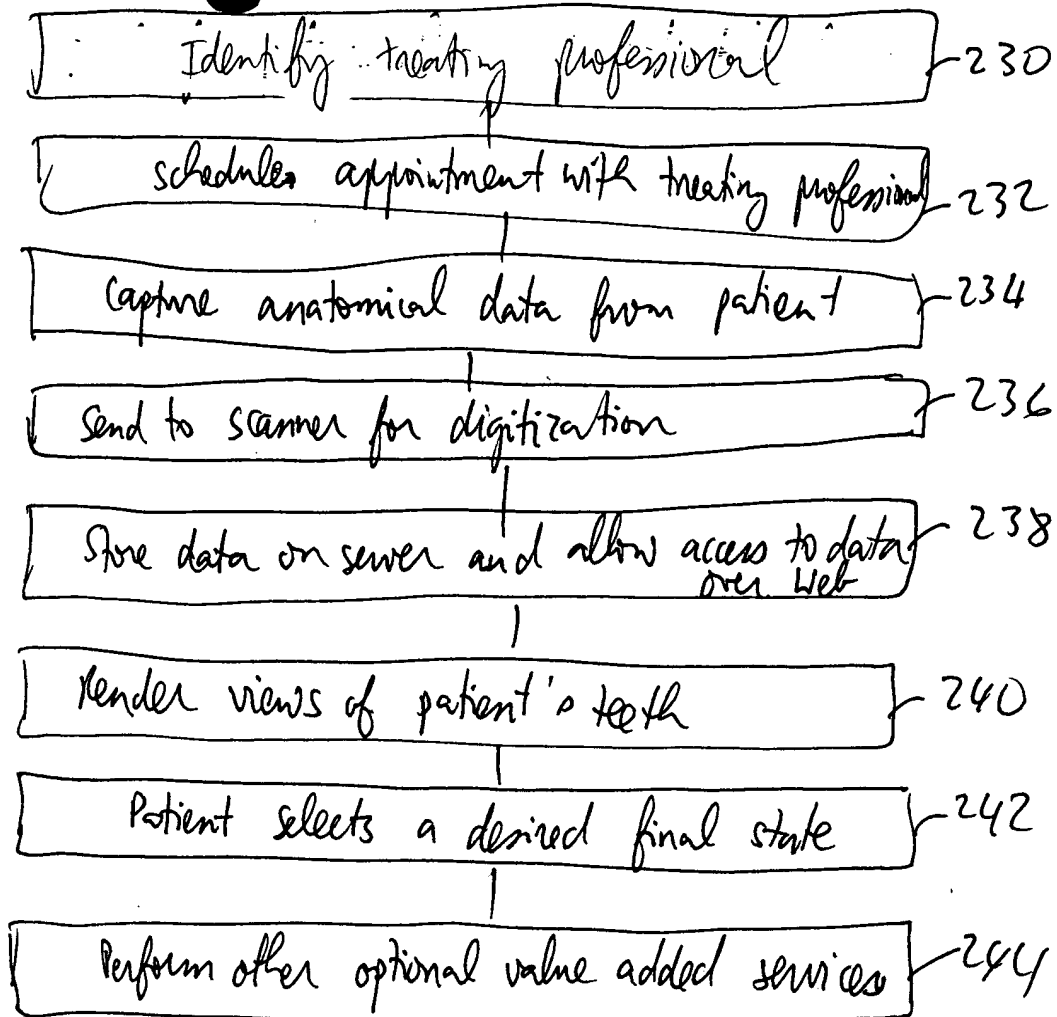 Identify treating professional 230
schedules appointment with treating professional 232
Capture anatomical data from patient 234
Send to scanner for digitization 236
Store data on server and allow access to data 238
over Web
Render views of patient's teeth 240
Patient selects a desired final state 242
Perform other optional value added services 244